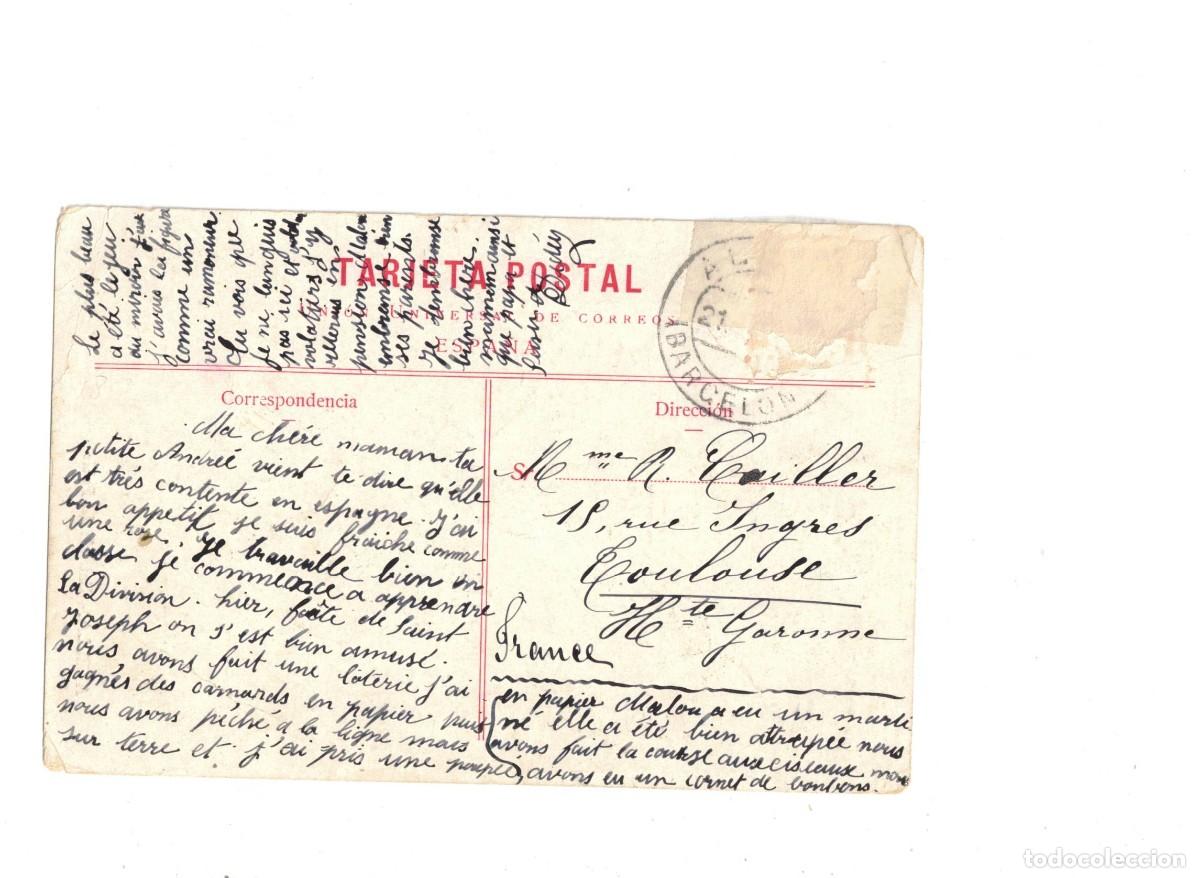 TARJETA POSTAL
UNIÓN UNIVERSAL DE CORREOS
ESPAÑA
AL
21
(BARCELON
Correspondencia
Dirección
Ma chére maman ta
petite Andreé vient te dire qu'elle
est trés contente en espagne. J'ai
bon appetit je suis fraiche comme
une rose. Je travaille bien en
classe je commence a apprendre
la Division. hier, fête de Saint
Joseph on s'est bien amusé.
nous avons fait une loterie j'ai
gagnés des canards en papier puis
nous avons péché a la ligne mais
sur terre et j'ai pris une poupée
en papier Malou a eu un marti
né elle a été bien attrapée nous
avons fait la course aux ciseaux nous
avons eu un cornet de bonbons.
Le plus beau
a été le jeu
du miroir j'ai
j'avais la figure
comme un
vrai ramoneur
Tu vois que
je ne languis
pas ici et
volatiers j'y
resterais en
pension. Malou
embrasse bien
ses parents.
Je t'embrasse
bien chére
maman ainsi
que papa et
Dédéy
S/
Mme R. Tailler
15, rue Ingres
Toulouse
Hte Garonne
France
todocoleccion